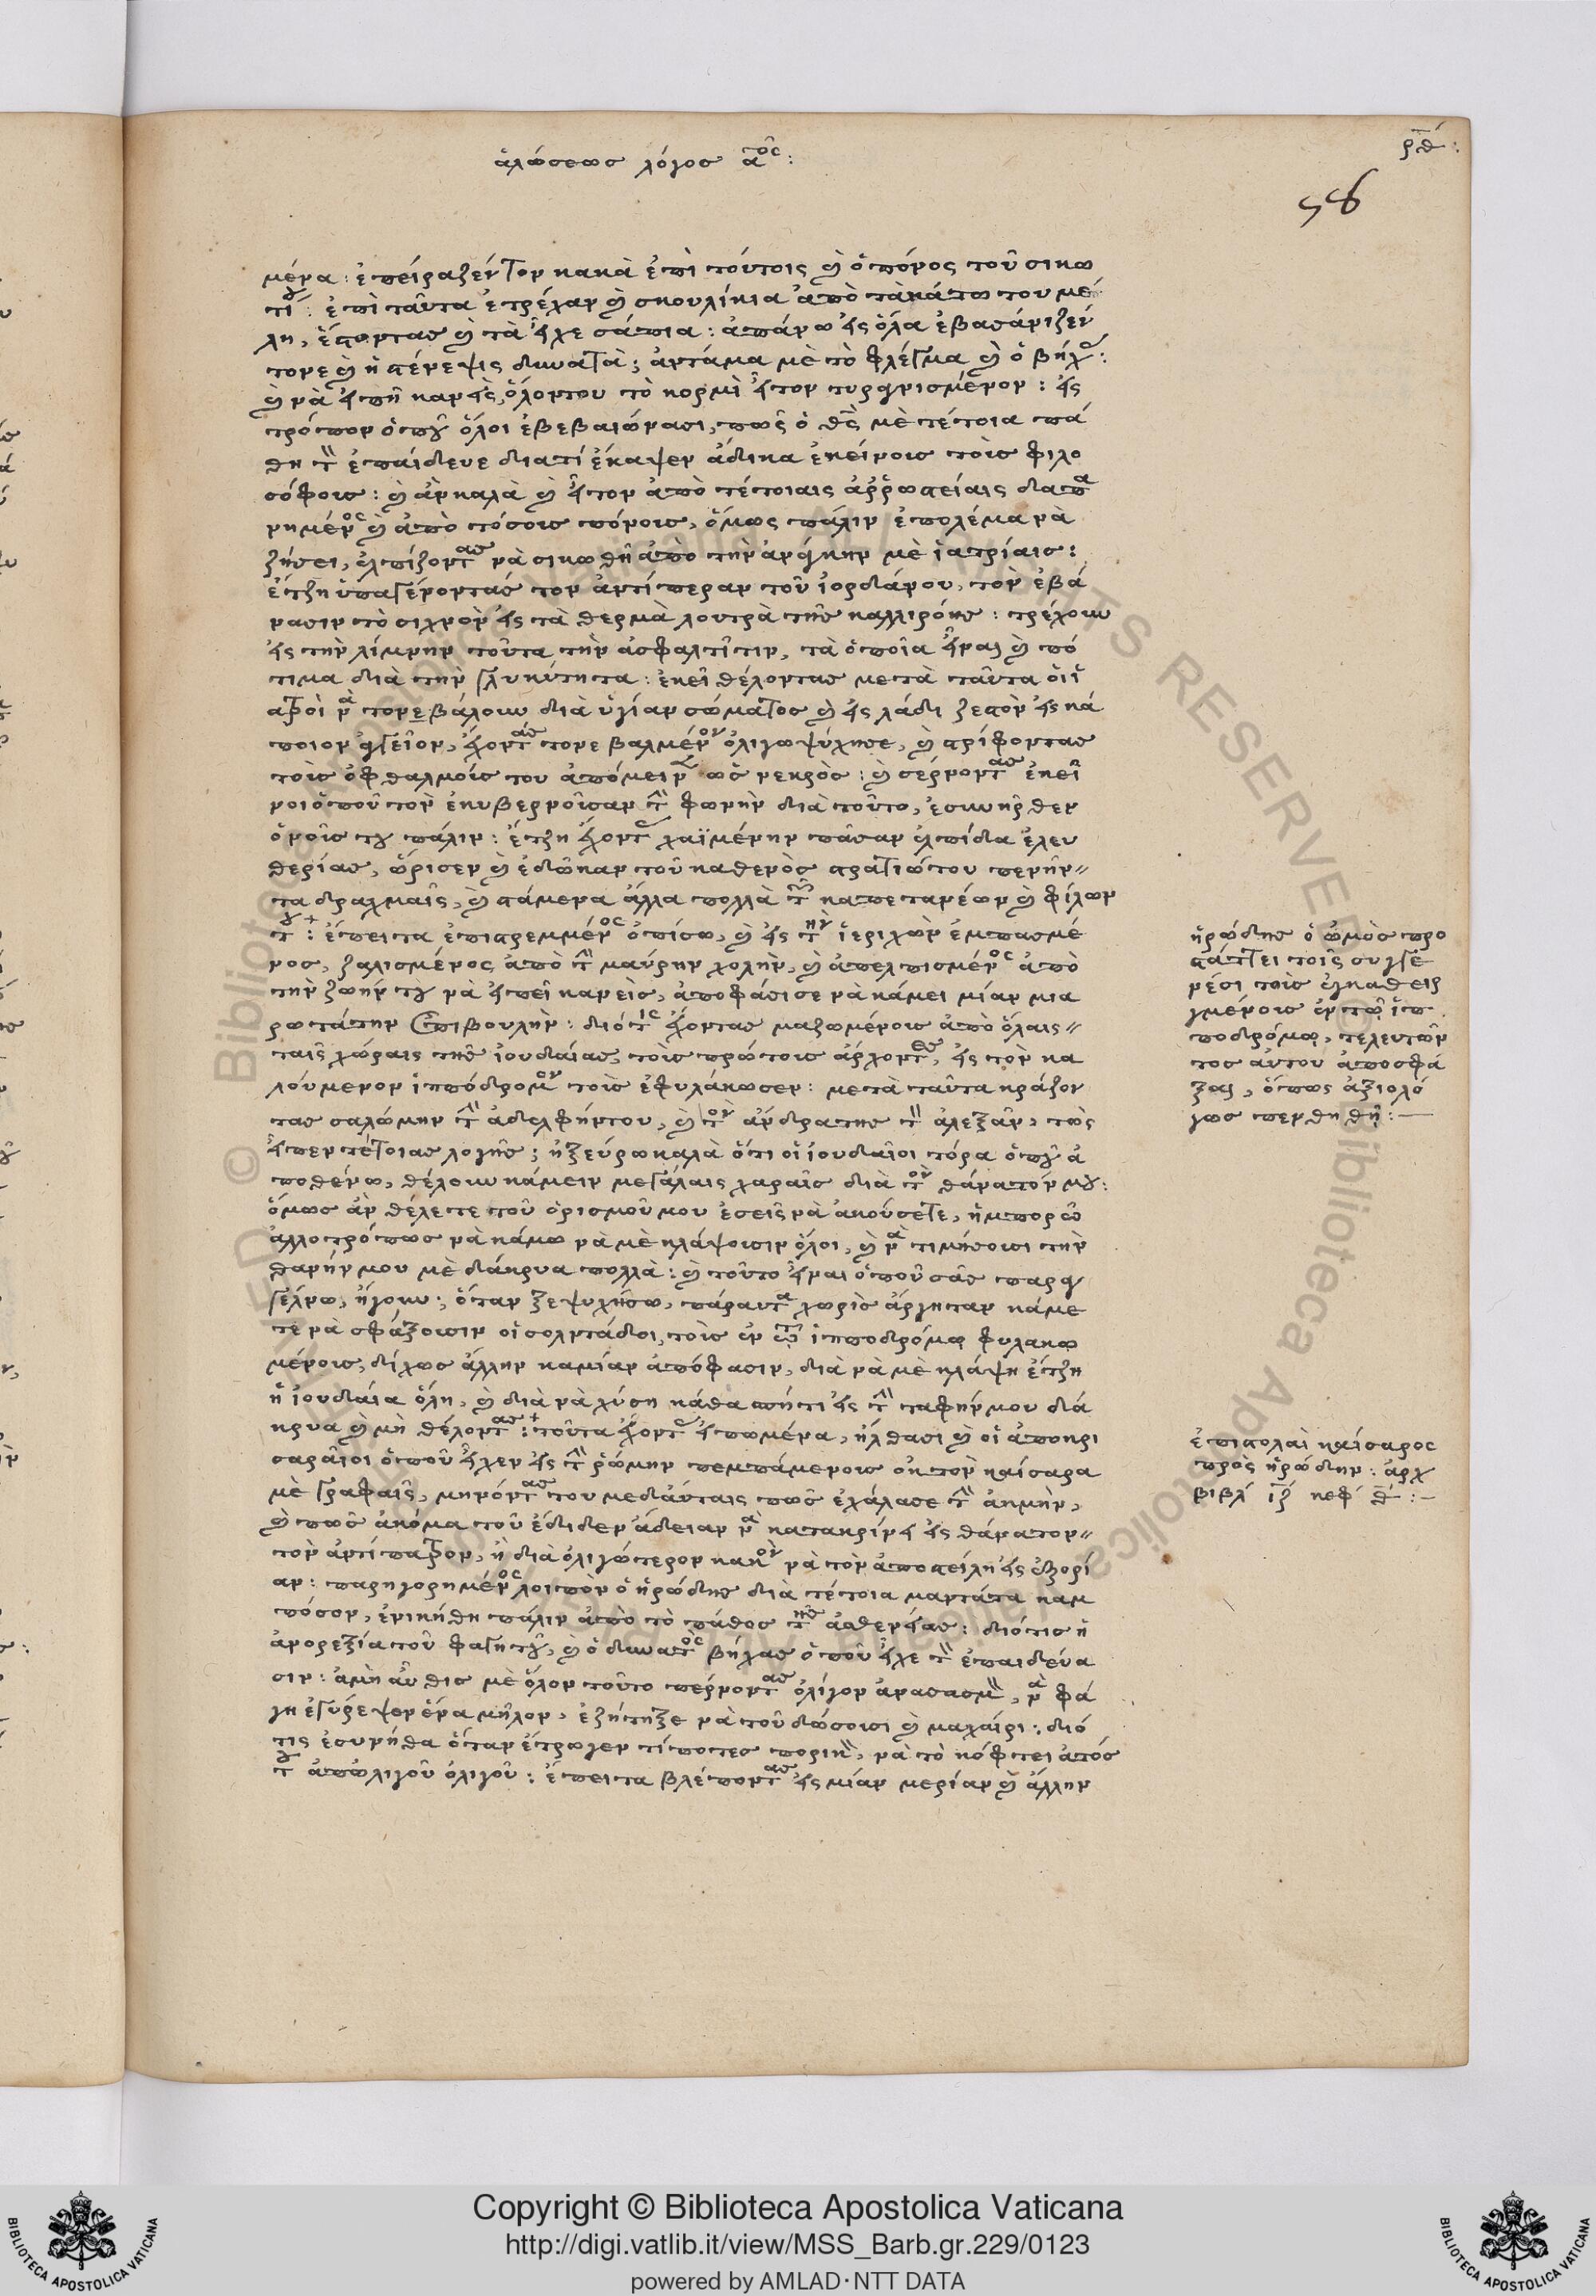 ἁλώσεως λόγος α<sup>ος</sup>:
ρθ:
56
μένα: ἐπείραζέν τον κακὰ ἐπὶ τούτοις καὶ ὁ πόνος τοῦ σικω
τί: ἐπὶ ταῦτα ἐτρέχαν καὶ σκουλίκια ἀπὸ τὰ κάτω του μέ
λη, ἔστοντας καὶ τὰ εἶχε σάπια: ἀπάνω εἰς ὅλα ἐβασάνιζέν
τονε καὶ ἡ στένεψις δυνατὰ; ἀντάμα μὲ τὸ φλέγμα καὶ ὁ βήχας:
καὶ νὰ εἰπῆ κανεὶς, ὅλον του τὸ κορμὶ εἶτον τυραννισμένον: εἰς
τρόπον ὁποῦ ὅλοι ἐβεβαιώνασι, πῶς ὁ θεὸς μὲ τέτοια πά
θη τὸν ἐπαίδευε διατί ἔκαψεν ἄδικα ἐκείνους τοὺς φιλο
σόφους: καὶ ἂν καλὰ καὶ εἶτον ἀπὸ τέτοιαις ἀρρωστείαις δαπα
νημένος καὶ ἀπὸ τόσους πόνους, ὅμως πάλιν ἐπολέμα νὰ
ζήσει, ἐλπίζοντας νὰ σικωθῆ ἀπὸ τὴν ἀνάγκην μὲ ἰατρίαις:
ἔτζη ὑπαγένοντάς τον ἀντίπεραν τοῦ ἰορδάνου, τὸν ἐβά
νασιν τὸ συχνὸν εἰς τὰ θερμὰ λουτρὰ τῆς καλλιρόης: τρέχουν
εἰς τὴν λίμνην τοῦτα τὴν ἀσφαλτῖτιν, τὰ ὁποῖα εἶναι καὶ πό
τιμα διὰ τὴν γλυκύτητα: ἐκεῖ θέλοντας μετὰ ταῦτα οἱ ἰ
ατροὶ νὰ τονε βάλουν διὰ ὑγίαν σώματος καὶ εἰς λάδι ζεστὸν εἰς κά
ποιον ἀγγεῖον, ἔχοντας τονε βαλμένον ὀλιγωψύχησε, καὶ στρίφοντας
τοὺς ὀφθαλμούς του ἀπόμεινεν ὡς νεκρὸς: καὶ σέρνοντας ἐκεῖ
νοι ὁποῦ τὸν ἐκυβερνοῦσαν τὴν φωνὴν διὰ τοῦτο, ἐσυνῆρθεν
ὁ νοῦς του πάλιν: ἔτζη ἔχοντας χαϊμένην πᾶσαν ἐλπίδα ἐλευ
θερίας, ὥρισεν καὶ ἐδῶκαν τοῦ καθενὸς στρατιώτου πενῆν
τα δραχμαῖς, καὶ στάμενα ἄλλα πολλὰ τῶν καπετανέων καὶ φίλων
του: ἔπειτα ἐπιστρεμμένος ὀπίσω, καὶ εἰς τὴν ἱεριχὼν ἐμπασμέ
νος, ζαλισμένος ἀπὸ τὴν μαύρην χολὴν, καὶ ἀπελπισμένος ἀπὸ
τὴν ζωήν του νὰ εἰπεῖ κανεὶς, ἀποφάσισε νὰ κάμει μίαν μια
ρωτάτην ἐπιβουλὴν: διότις ἔχοντας μαζωμένους ἀπὸ ὅλαις
ταῖς χώραις τῆς ἰουδαίας, τοὺς πρώτους ἄρχοντες, εἰς τὸν κα
λούμενον ἱππόδρομον τοὺς ἐφυλάκωσεν: μετὰ ταῦτα κράζον
τας σαλώμην τὴν ἀδελφήν του, καὶ τὸν ἄνδρα της τὸν ἀλέξαν, τοὺς
εἶπεν τέτοιας λογῆς; ἠξεύρω καλὰ ὅτι οἱ ἰουδαῖοι τόρα ὁποῦ ἀ
ποθένω, θέλουν κάμειν μεγάλαις χαραῖς διὰ τὸν θάνατόν μου:
ὅμως ἂν θέλετε τοῦ ὁρισμοῦ μου ἐσεῖς νὰ ἀκούσετε, ἠμπορῶ
ἀλλοτρόπως νὰ κάμω νὰ μὲ κλάψουσιν ὅλοι, καὶ νὰ τιμήσουσι τὴν
θανήν μου μὲ δάκρυα πολλὰ: καὶ τοῦτο εἶναι ὁποῦ σᾶς παρα
γέλνω, ἤγουν; ὅταν ξεψυχήσω, πάραυτα χωρὶς ἄργηταν κάμε
τε νὰ σφάξουσιν οἱ σολντάδοι, τοὺς ἐν τῷ ἱπποδρόμῳ φυλακω
μένους, δίχως ἄλλην καμίαν ἀπόφασιν, διὰ νὰ μὲ κλάψη ἔτζη
ἡ ἰουδαία ὅλη, καὶ διὰ νὰ χύση κάθα σπήτι εἰς τὴν ταφήν μου δά
κρυα καὶ μὴ θέλοντας: τοῦτα ἔχοντας εἰπωμένα, ἤλθασι καὶ οἱ ἀποκρι
σαραῖοι ὁποῦ εἶχεν εἰς τὴν ῥώμην πεμπάμενους εἰς τὸν καίσαρα
μὲ γραφαῖς, μηνόντας του μεδαύταις πῶς ἐχάλασε τὴν ἀκμὴν,
καὶ πῶς ἀκόμα τοῦ ἔδιδεν ἄδειαν νὰ κατακρίνει εἰς θάνατον
τὸν ἀντίπατρον, ἢ διὰ ὀλιγώτερον κακὸν νὰ τὸν ἀποστείλη εἰς ἐξορί
αν: παρηγορημένος λοιπὸν ὁ ἡρώδης διὰ τέτοια μαντάτα καμ
πόσον, ἐνικήθη πάλιν ἀπὸ τὸ πάθος τῆς ἀσθενείας: διότις ἡ
ἀνορεξία τοῦ φαγητοῦ, καὶ ὁ δυνατὸς βήχας ὁποῦ εἶχε τὸν ἐπαιδεύα
σιν: ἀμὴ αὖθις μὲ ὅλον τοῦτο πέρνοντας ὀλίγον ἀνασασμὸν, νὰ φά
γη ἐγύρεψεν ἕνα μῆλον, ἐζήτηξε νὰ τοῦ δώσουσι καὶ μαχαίρι: διό
τις ἐσυνήθα ὅταν ἔτρωγεν τίποτες πορικὸν, νὰ τὸ κόφτει ἀτός
του ἀπῶλιγοῦ ὀλιγοῦ: ἔπειτα βλέποντας εἰς μίαν μερίαν καὶ ἄλλην
ἡρώδης ὁ ὠμὸς προ
στάττει τοῖς συγγε
νέσι τοὺς ἐγκαθειρ
γμένους ἐν τῷ ἱπ
ποδρόμῳ, τελευτῶν
τος αὐτοῦ ἀποσφά
ξαι, ὅπως ἀξιολό
γως πενθηθῆ:
ἐπιστολαὶ καίσαρος
πρὸς ἡρώδην: ἀρχ
βιβλί ιζ κεφ θ:
Copyright © Biblioteca Apostolica Vaticana
http://digi.vatlib.it/view/MSS_Barb.gr.229/0123
powered by AMLAD·NTT DATA
BIBLIOTECA APOSTOLICA VATICANA
BIBLIOTECA APOSTOLICA VATICANA